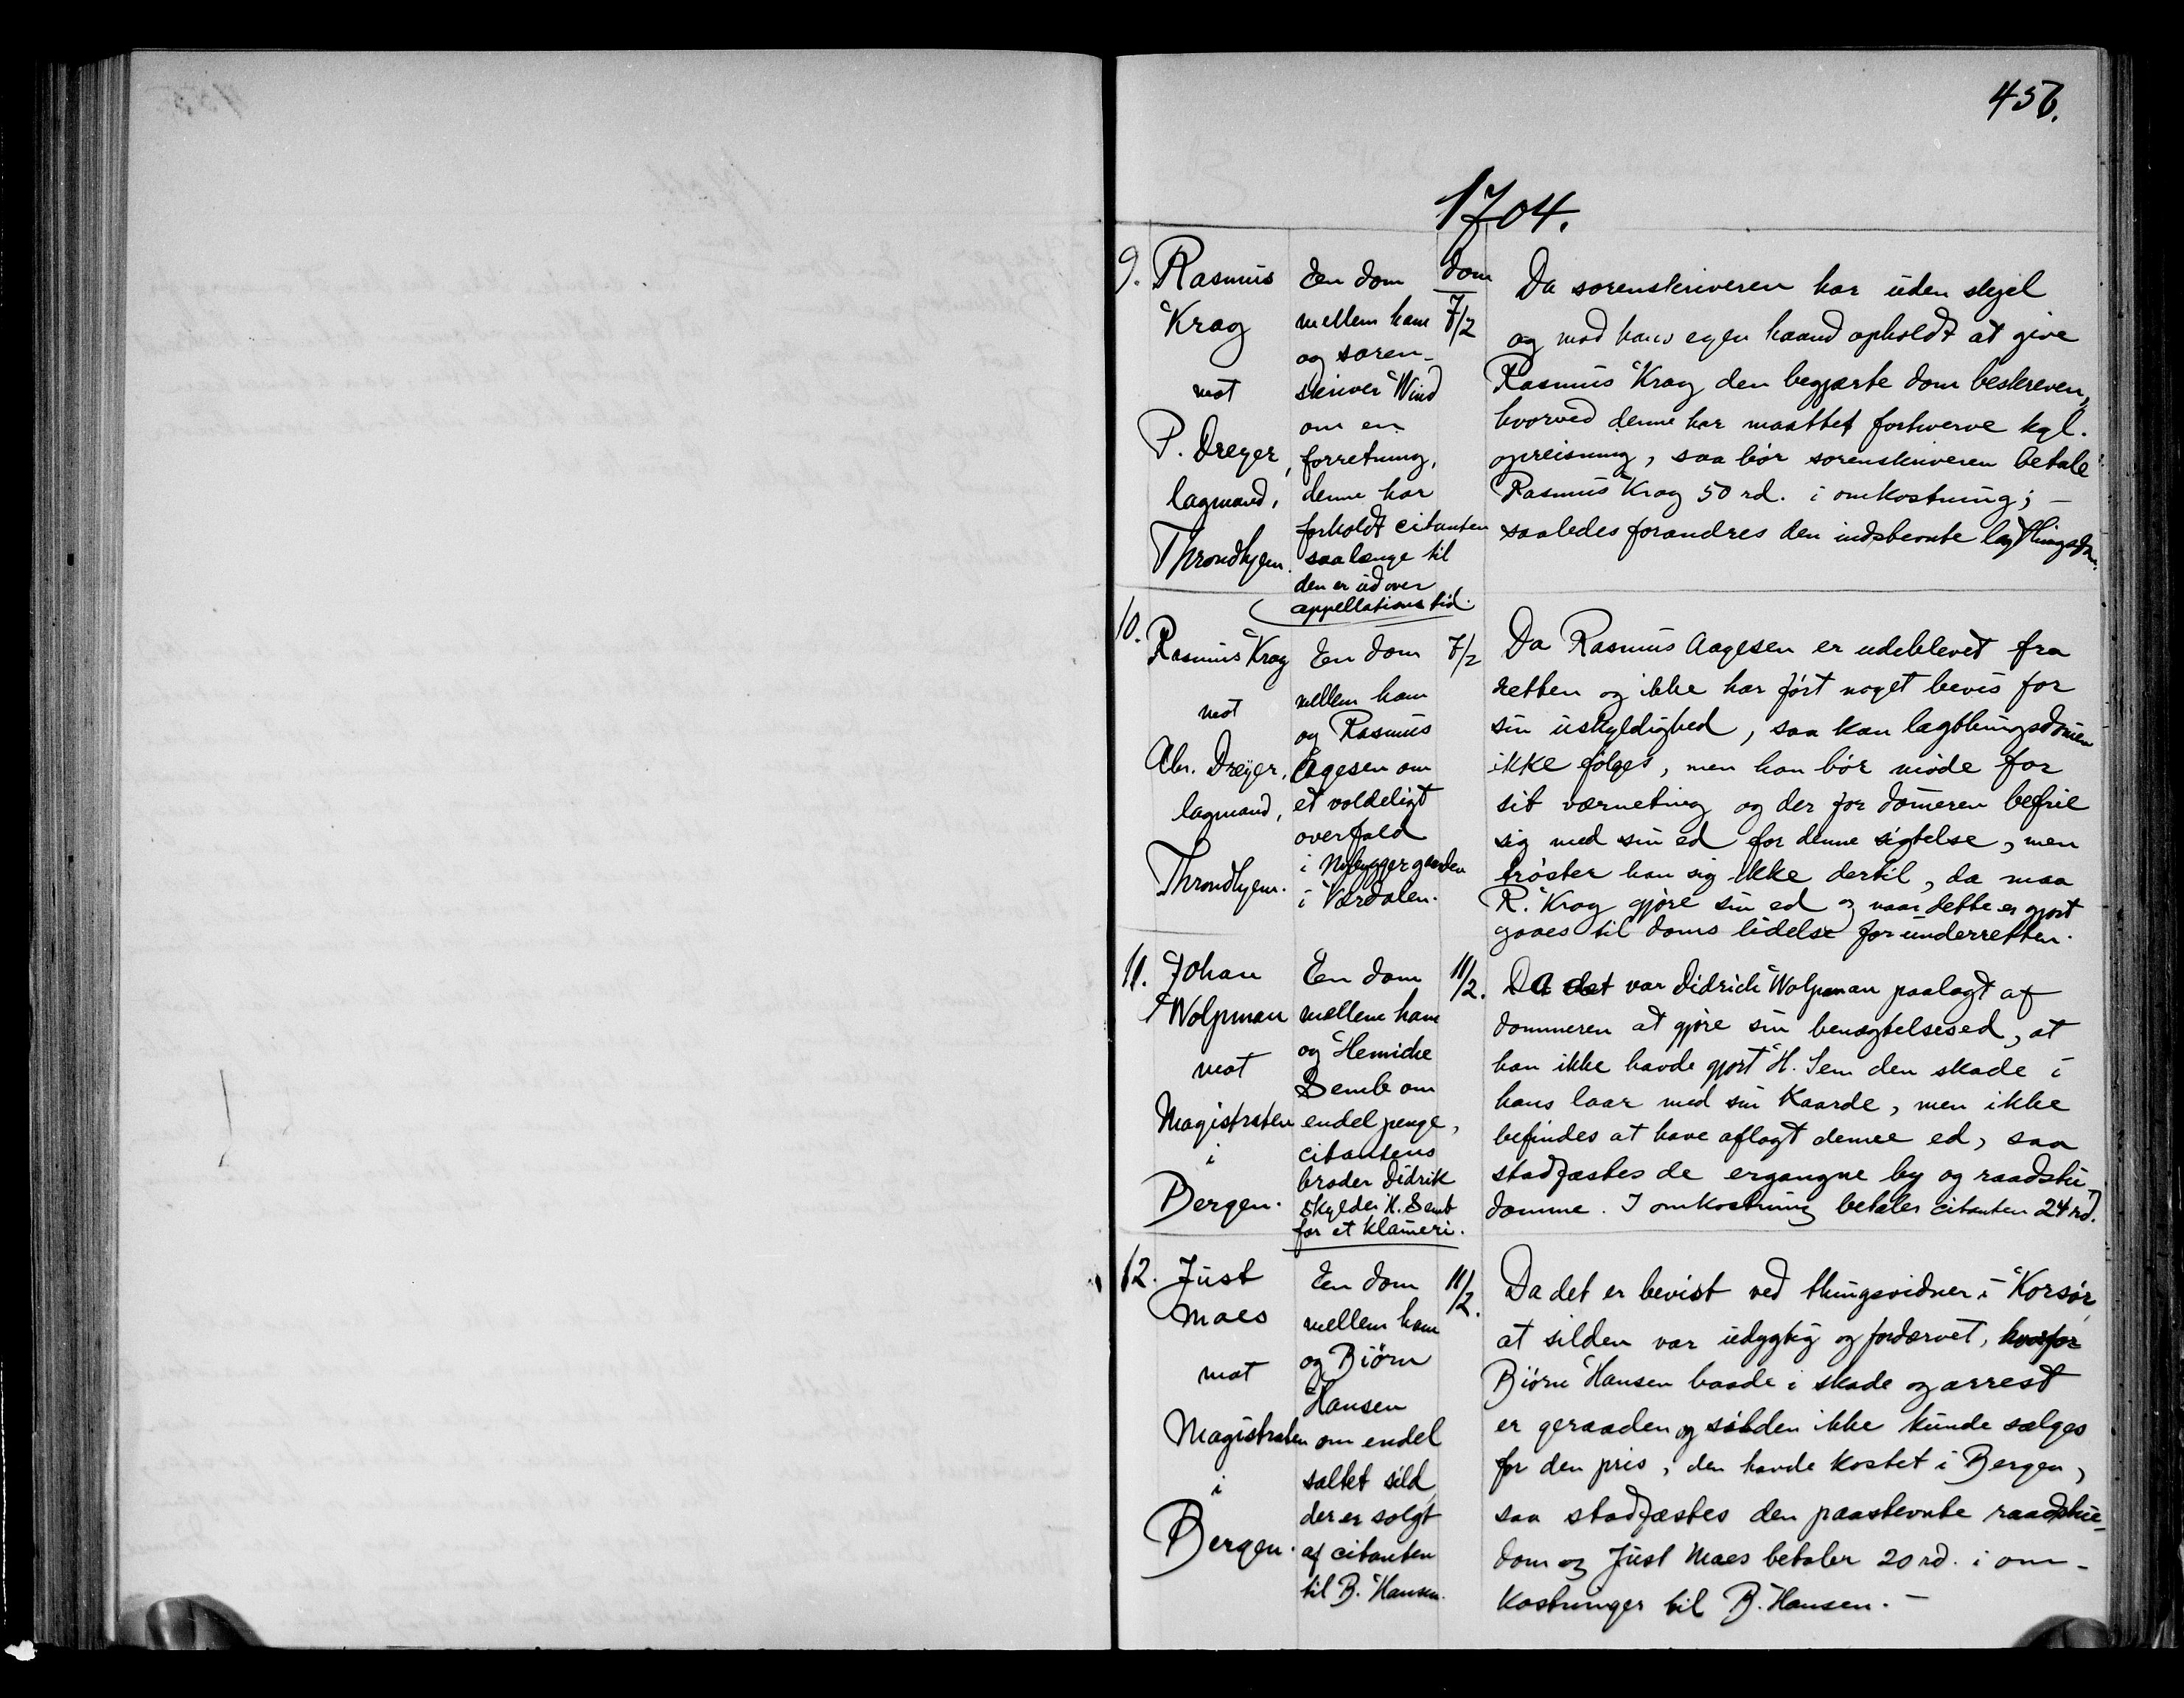 456.
1704.
9. Rasmus
Krag
mot
P. Dreyer,
lagmand,
Throndhjem.
En dom
mellem ham
og soren-
skriver Wind
om en
forretning,
denne har
forholdt citanten
saalænge til
den er ud over
appellations tid.
dom
7/2
Da sorenskriveren har uden skjel
og mod hans egen haand opholdt at give
Rasmus Krag den begjærte dom beskreven,
hvorved denne har maattet forhverve kgl.
opreisning, saa bør sorenskriveren betale
Rasmus Krag 50 rd. i omkostning; -
saaledes forandres den indstevnte lagthingsdom.
10.
Rasmus Krag
mot
Abr. Dreyer,
lagmand,
Throndhjem.
En dom
mellem ham
og Rasmus
Agesen om
et voldeligt
overfald
i Nybyggergaarden
i Værdalen.
7/2
Da Rasmus Aagesen er udeblevet fra
retten og ikke har ført noget bevis for
sin uskyldighed, saa kan lagthingsdomen
ikke følges, men han bør møde for
sit værneting og der for domeren befrie
sig med sin ed for denne sigtelse, men
trøster han sig ikke dertil, da maa
R. Krag gjøre sin ed og naar dette er gjort
gaaes til doms lidelse for underretten.
11. Johan
Wolpman
mot
Magistraten
i
Bergen.
En dom
mellem ham
og Henriche
Semb om
endel penge,
citantens
broder Didrik
skylder H. Semb
for et klameri.
11/2.
Da det var Didrich Wolpman paalagt af
dommeren at gjøre sin benægtelsesed, at
han ikke havde gjort H. Sem den skade i
hans laar med sin kaarde, men ikke
befindes at have aflagt denne ed, saa
stadfæstes de ergangne by og raadstu-
domme. I omkostning betaler citanten 24 rd.
12. Just
Maes
mot
Magistraten
i
Bergen.
En dom
mellem ham
og Biørn
Hansen
om endel
saltet sild,
der er solgt
af citanten
til B. Hansen.
11/2.
Da det er bevist ved thingsvidner i Korsør,
at silden var udygtig og fordærvet, hvorfor
Biørn Hansen baade i skade og arrest
er geraaden og silden ikke kunde sælges
for den pris, den havde kostet i Bergen,
saa stadfæstes den paastevnte raadstue-
dom og Just Maes betaler 20 rd. i om-
kostninger til B. Hansen. -